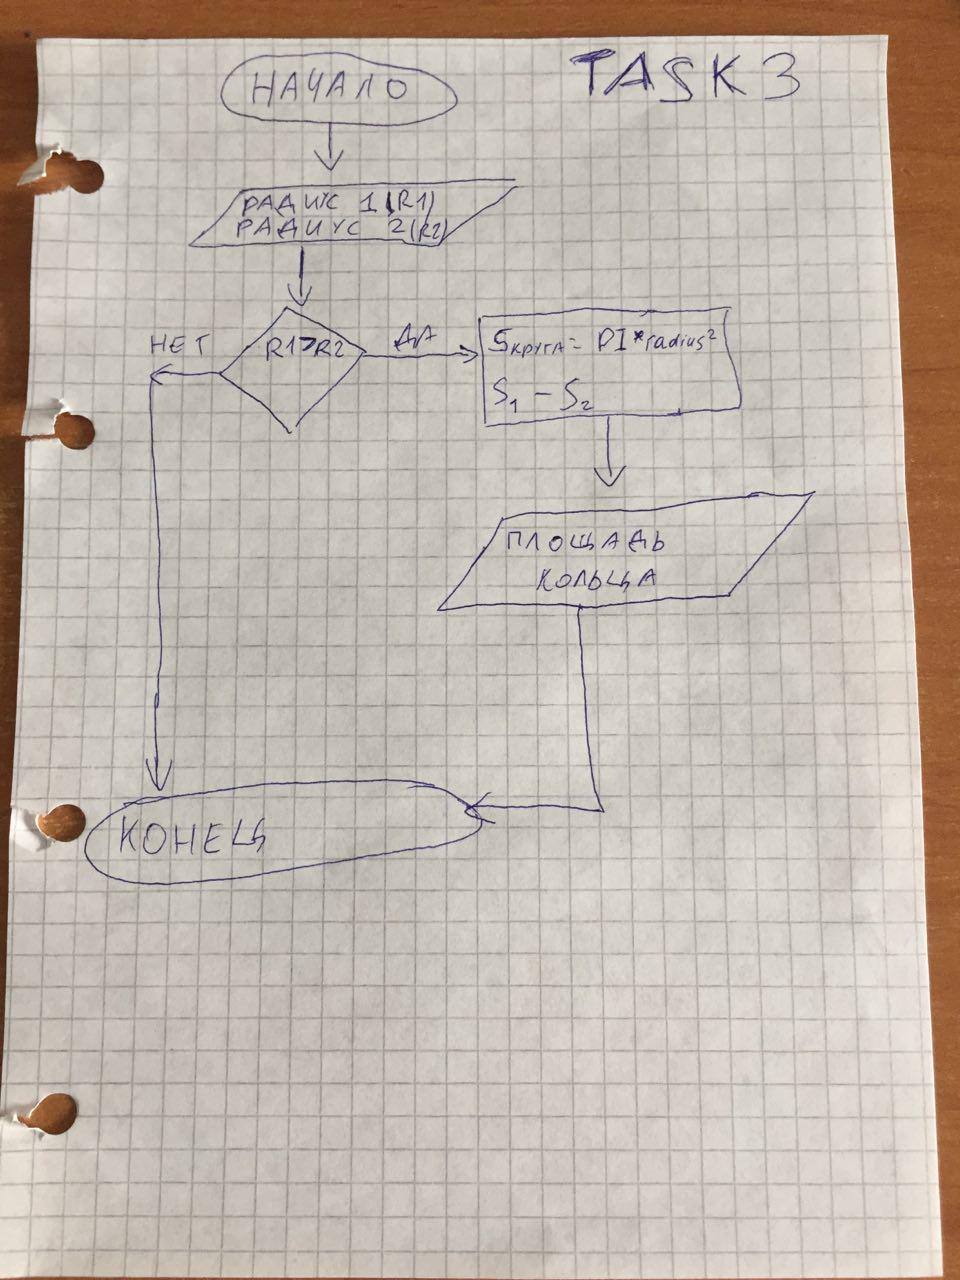 TASK 3
НАЧАЛО
РАДИУС 1 (R1)
РАДИУС 2 (R2)
НЕТ
R1>R2
ДА
Sкруга = PI*radius²
S₁ - S₂
ПЛОЩАДЬ
КОЛЬЦА
КОНЕЦ